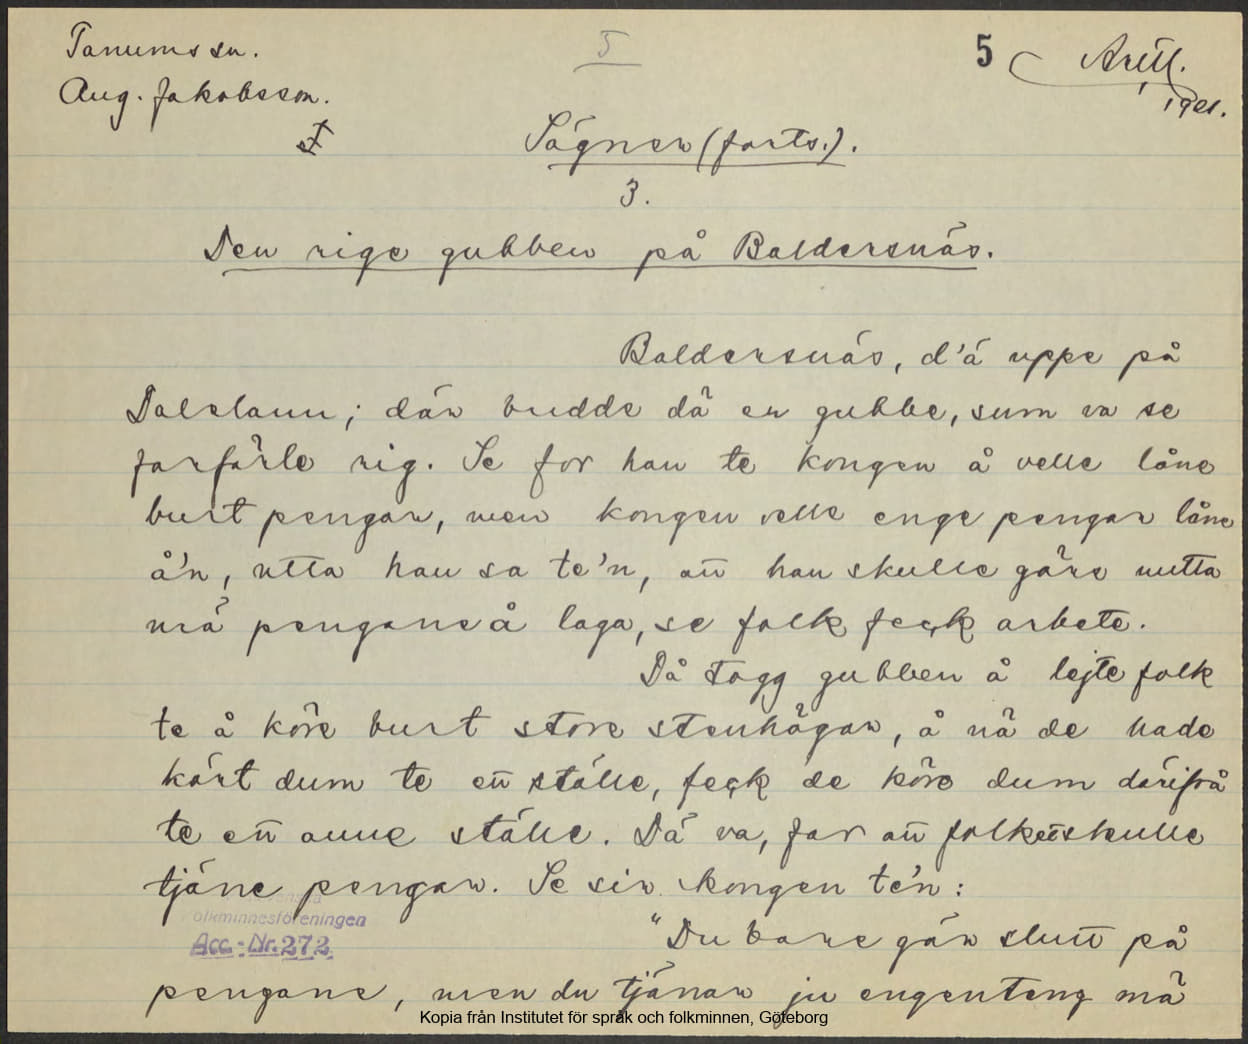 Tanums sn.
Aug. Jakobsson.
5
5
1921.
Sägner (forts.).
3.
Den rige gubben på Baldersnäs.
Baldersnäs, d'ä uppe på
Dalslann; där budde dä en gubbe, sum va se
farfärle rig. Se for han te kongen å velle låne
burt pengar, men kongen velle enge pengar låne
å'n, utta han sa te'n, añ han skulle göre nutta
mä pengane å laga, se folk feck arbete.
Då togg gubben å lejte folk
te å köre burt store stenhögar, å nä de hade
kört dum te eñ ställe, feck de köre dum därifrå
te eñ anne ställe. Dä va, far añ folk skulle
tjäne pengar. Se sir kongen te'n:
"Du bare gär slutt på
pengane, men du tjänar ju engenteng mä
folkminnesföreningen
Acc.-Nr. 272.
Kopia från Institutet för språk och folkminnen, Göteborg